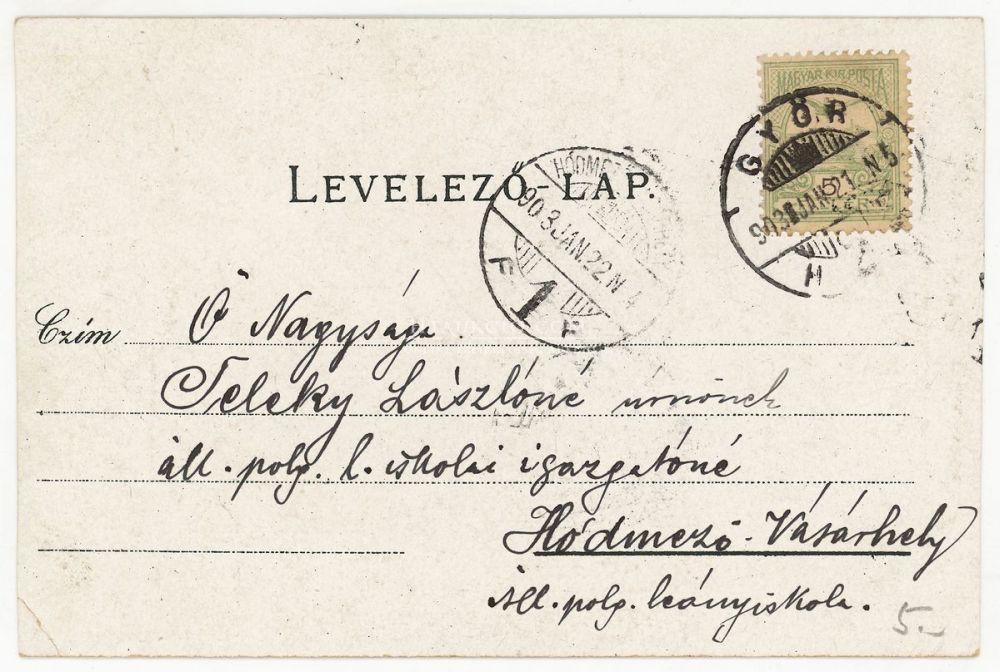 MAGYAR KIR. POSTA
GYŐR
903 JAN 21 N 5
LEVELEZŐ-LAP.
HÓDM
903 JAN. 22 N 4
F 1 F
Czím Ő Nagysága
Teleky Lászlóné urnőnek
áll. polg. l. iskolai igazgatóné
Hódmező-Vásárhely
Áll. polg. leányiskola.
5.-